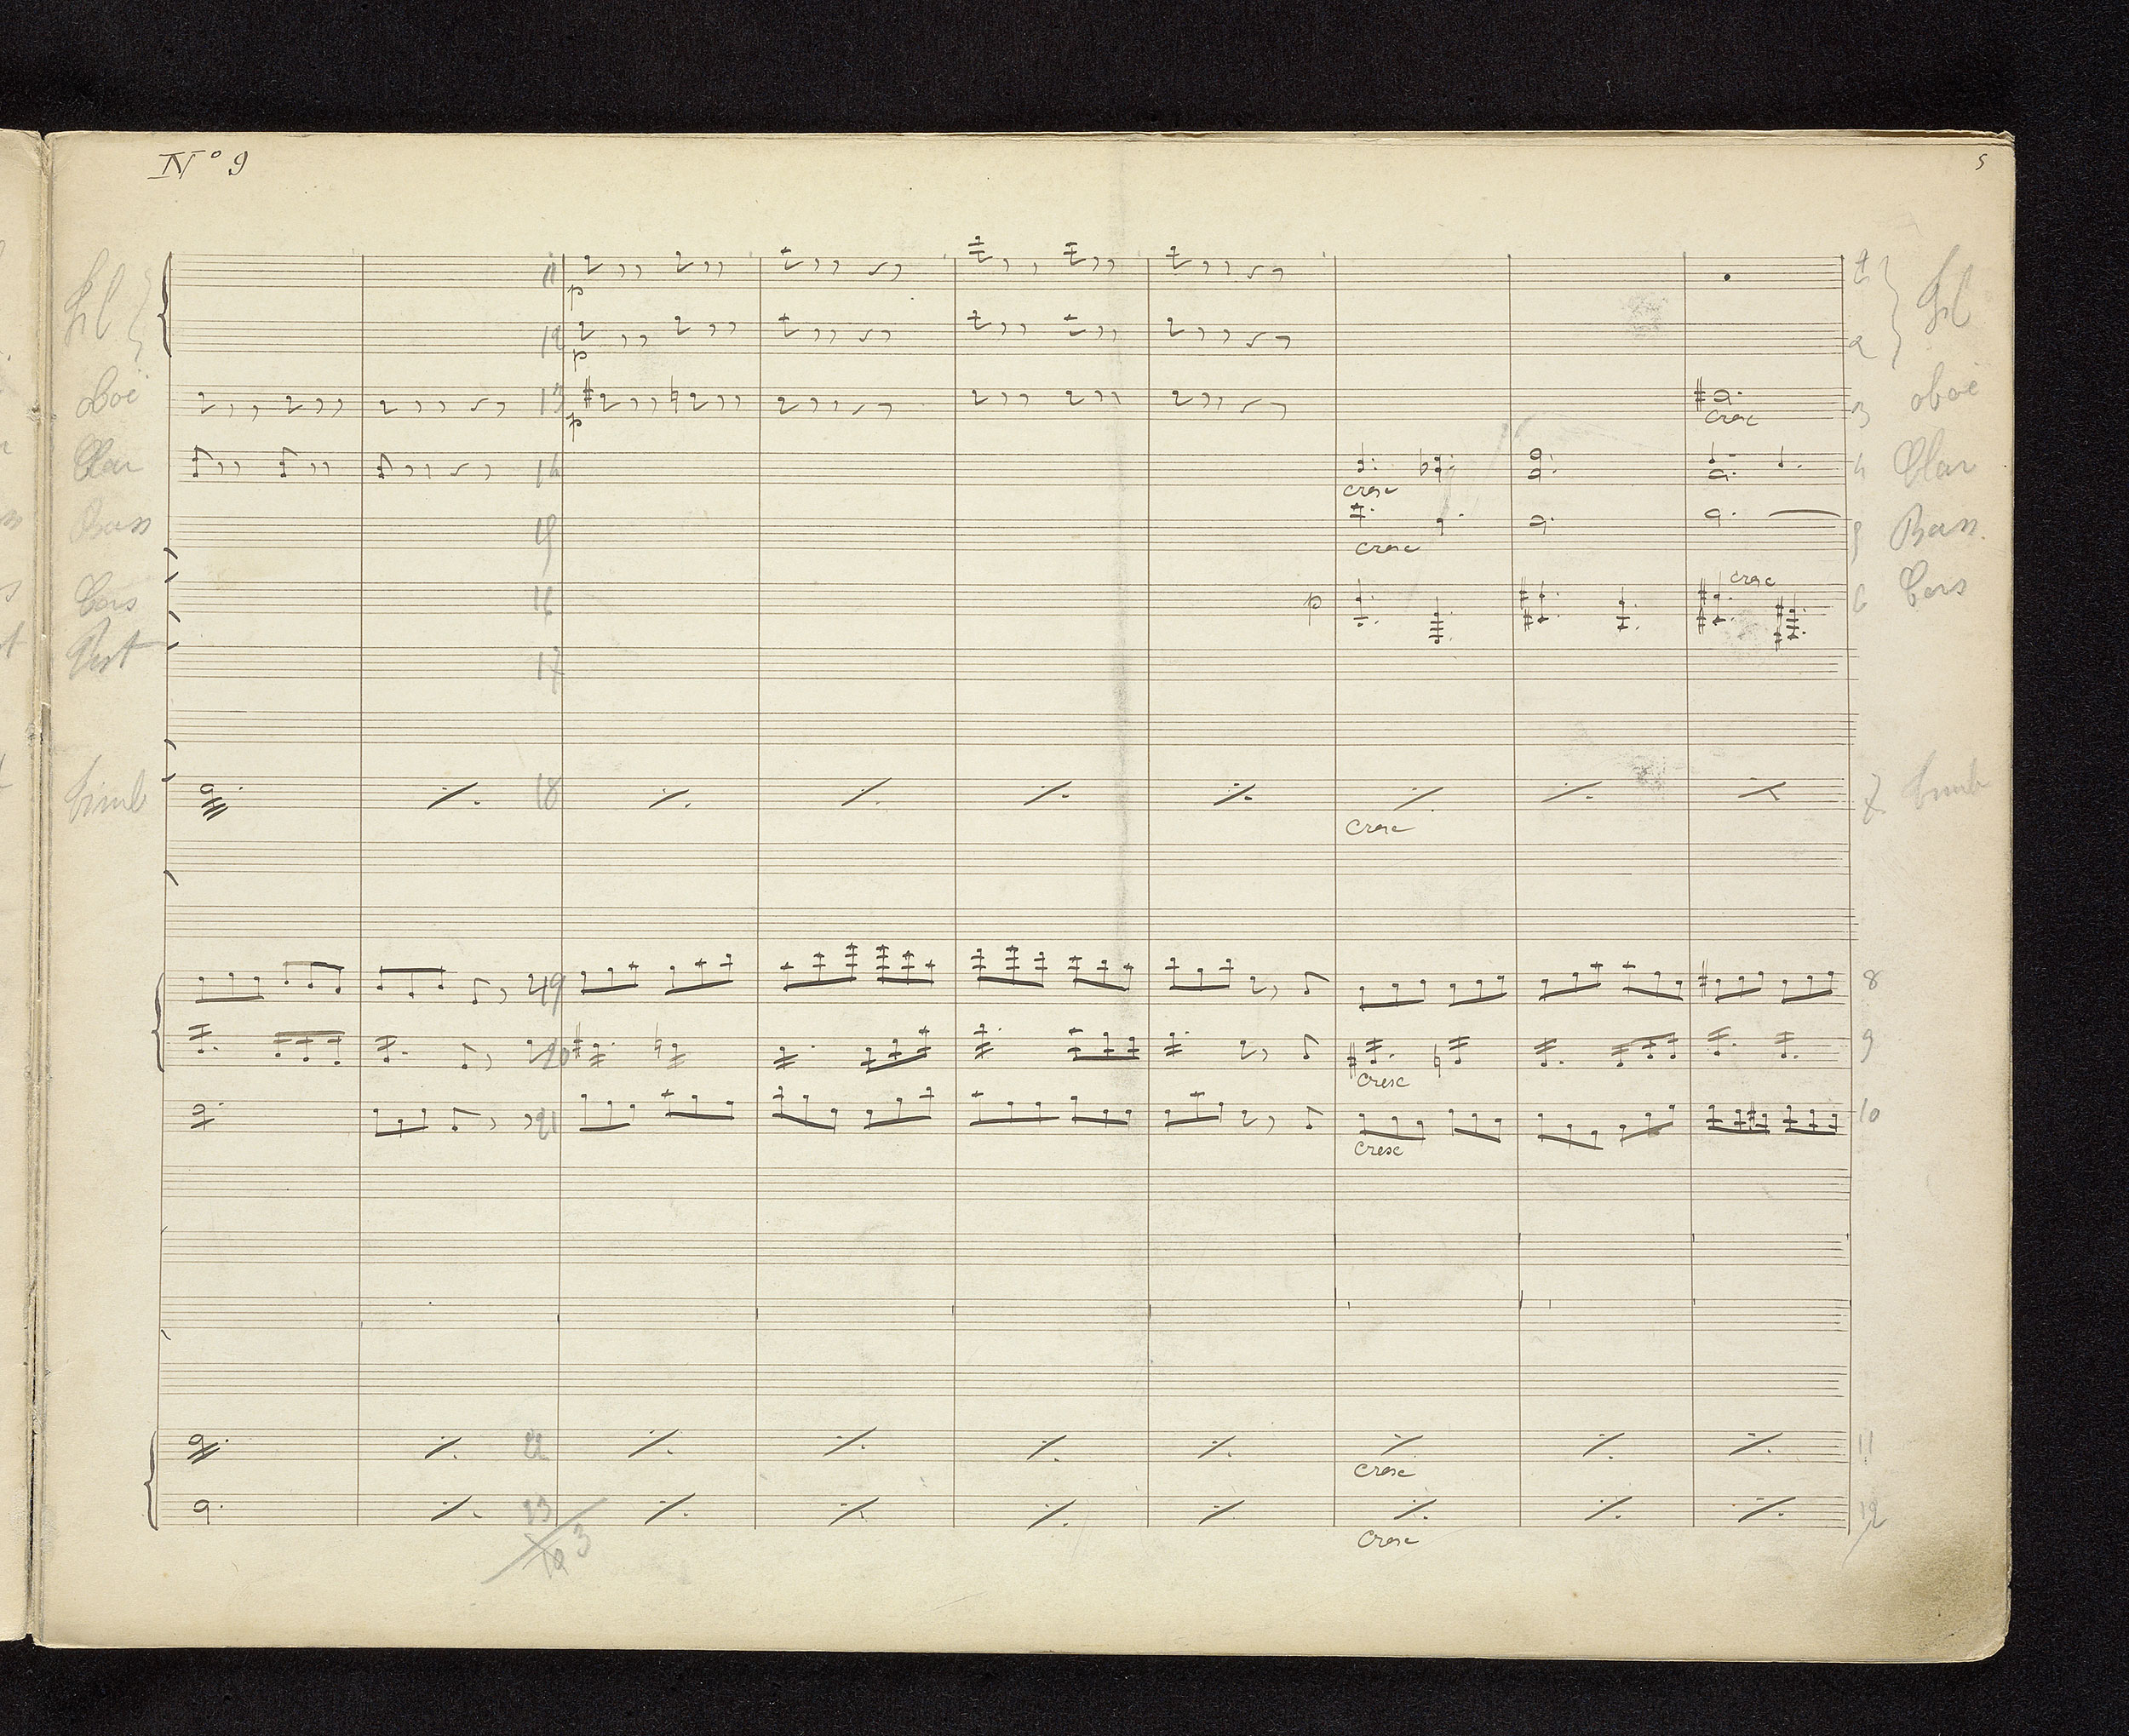 Nº 9
5
fl 11 p 1 fl
12 p 2
oboë 13 p cresc 3 oboë
Clar 14 cresc 4 Clar
Bass 15 cresc 5 Bass.
Cors 16 p cresc 6 Cors
Pist 17
Timb 18 cresc 7 Timb
19 8
20 cresc 9
21 cresc 10
22 cresc 11
23 12
cresc